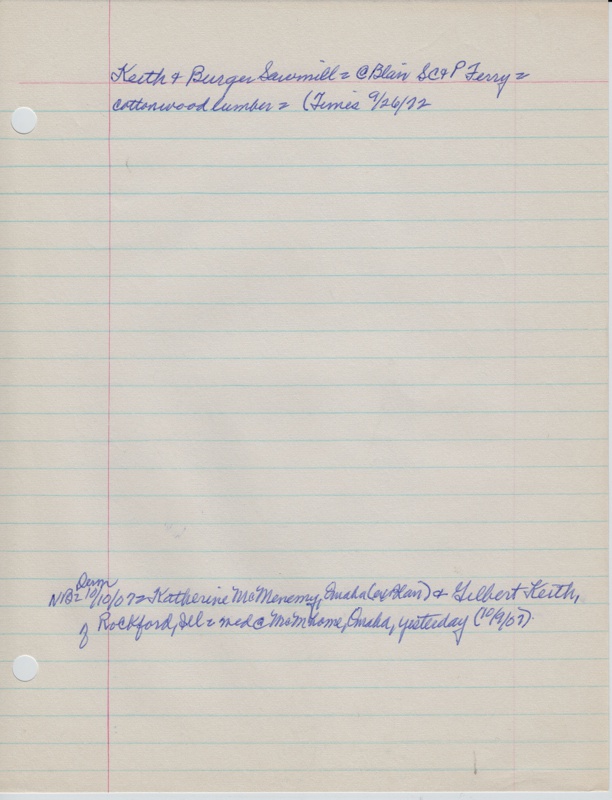 Keith & Burger Sawmill = @ Blair SC&P Ferry =
cottonwood lumber = (Times 9/26/72
Dem
NB= 10/10/07 = Katherine McMenemy, Omaha (ex Blair) & Gilbert Keith,
of Rockford, Ill = med @ McM home, Omaha, yesterday (10/9/07).